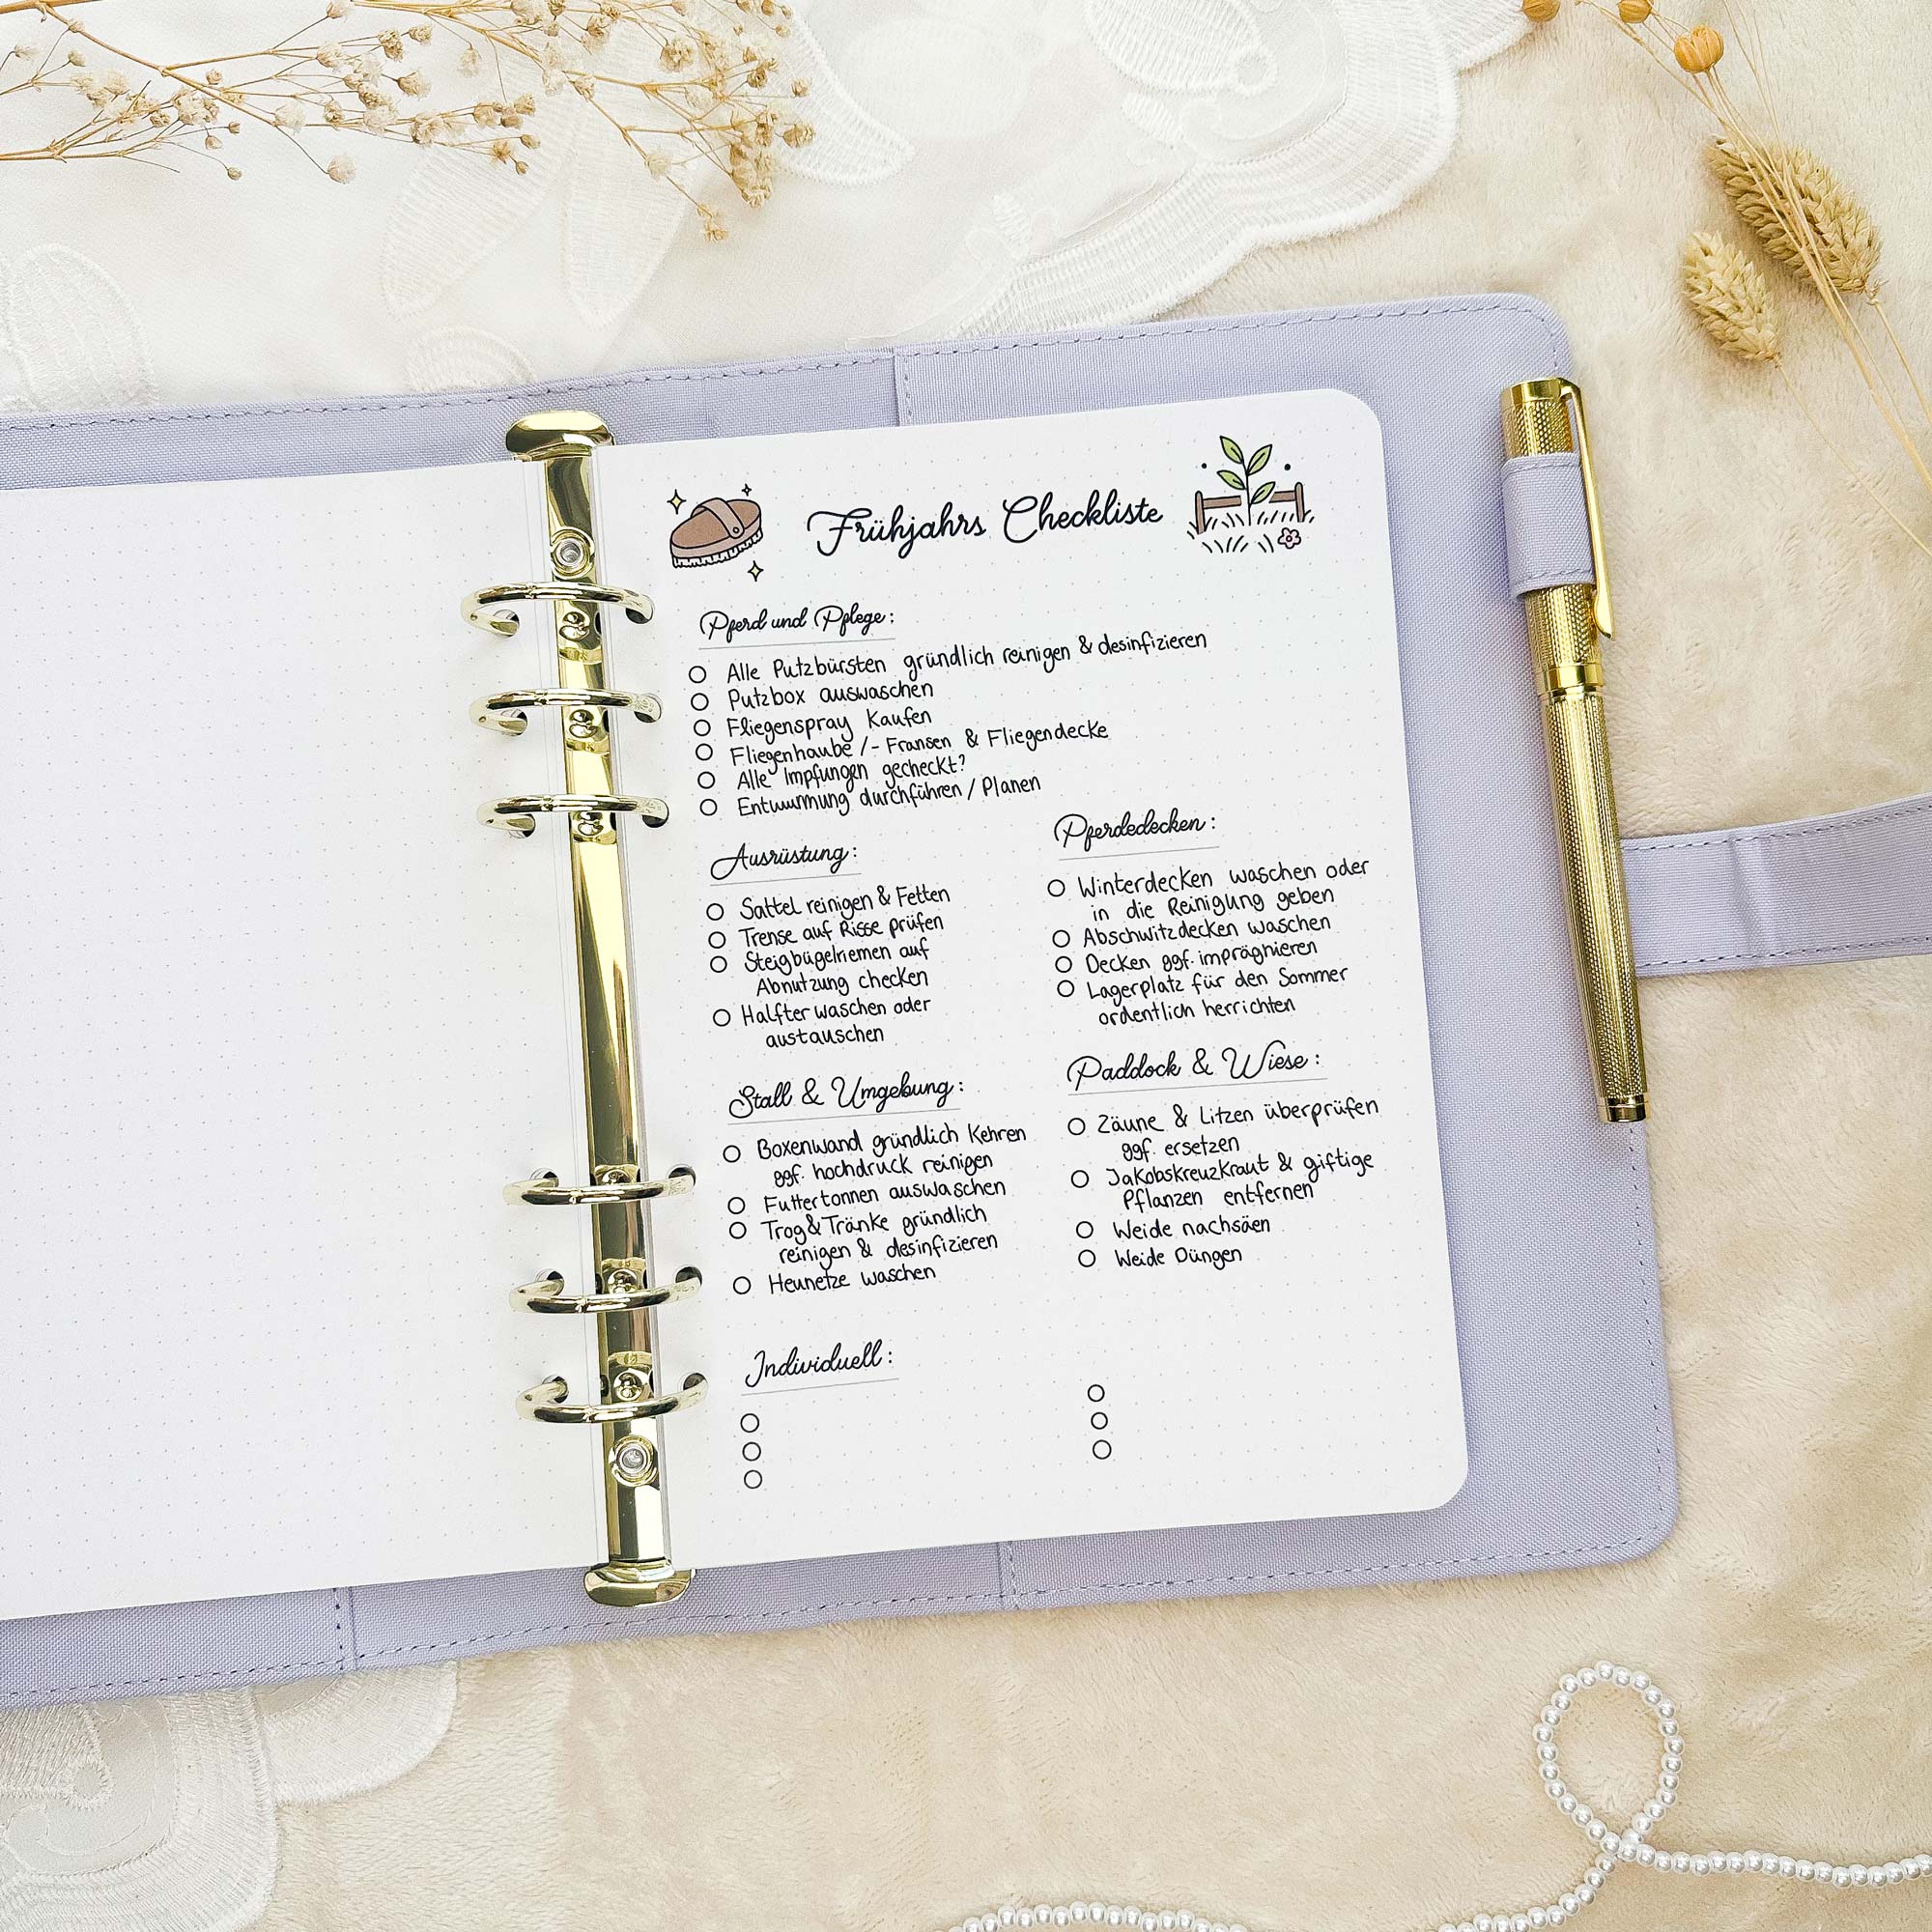 Frühjahrs Checkliste
Pferd und Pflege:
Alle Putzbürsten gründlich reinigen & desinfizieren
Putzbox auswaschen
Fliegenspray Kaufen
Fliegenhaube /- Fransen & Fliegendecke
Alle Impfungen gecheckt?
Entwurmung durchführen / Planen
Ausrüstung:
Sattel reinigen & Fetten
Trense auf Risse prüfen
Steigbügelriemen auf
Abnutzung checken
Halfter waschen oder
austauschen
Pferdedecken:
Winterdecken waschen oder
in die Reinigung geben
Abschwitzdecken waschen
Decken ggf. imprägnieren
Lagerplatz für den Sommer
ordentlich herrichten
Stall & Umgebung:
Boxenwand gründlich Kehren
ggf. hochdruck reinigen
Futtertonnen auswaschen
Trog & Tränke gründlich
reinigen & desinfizieren
Heunetze waschen
Paddock & Wiese:
Zäune & Litzen überprüfen
ggf. ersetzen
Jakobskreuzkraut & giftige
Pflanzen entfernen
Weide nachsäen
Weide Düngen
Individuell: